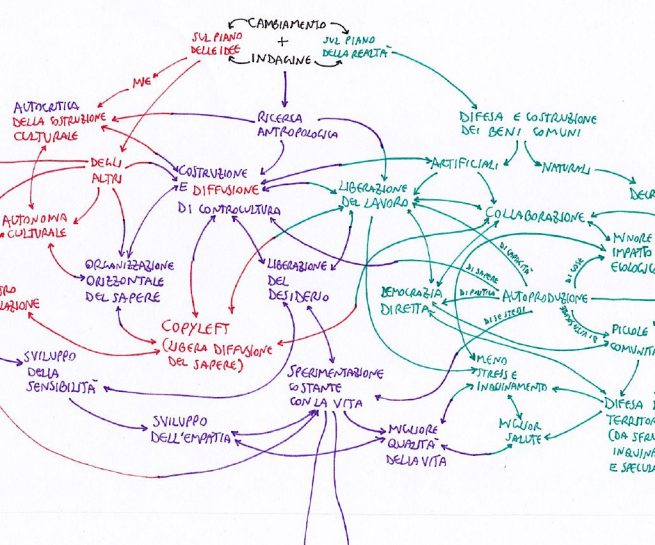 CAMBIAMENTO
+
INDAGINE
SUL PIANO
DELLE IDEE
SUL PIANO
DELLA REALTÀ
MIE
AUTOCRITICA
DELLA COSTRUZIONE
CULTURALE
RICERCA
ANTROPOLOGICA
DIFESA E COSTRUZIONE
DEI BENI COMUNI
DEGLI
ALTRI
COSTRUZIONE
E DIFFUSIONE
DI CONTROCULTURA
LIBERAZIONE
DEL LAVORO
ARTIFICIALI
NATURALI
DECR
AUTONOMIA
CULTURALE
COLLABORAZIONE
MINORE
IMPATTO
ECOLOGICO
ORGANIZZAZIONE
ORIZZONTALE
DEL SAPERE
LIBERAZIONE
DEL
DESIDERIO
DEMOCRAZIA
DIRETTA
DI CAPACITÀ
DI SAPERE
DI POLITICA
DI SE STESSI
DI COSE
AUTOPRODUZIONE
TRO
LAZIONE
COPYLEFT
(LIBERA DIFFUSIONE
DEL SAPERE)
PICCOLE
COMUNITÀ
SVILUPPO
DELLA
SENSIBILITÀ
SPERIMENTAZIONE
COSTANTE
CON LA VITA
MENO
STRESS E
INQUINAMENTO
SVILUPPO
DELL'EMPATIA
MIGLIORE
QUALITÀ
DELLA VITA
MIGLIOR
SALUTE
DIFESA
TERRITOR
(DA SFRU
INQUINA
E SPECULA